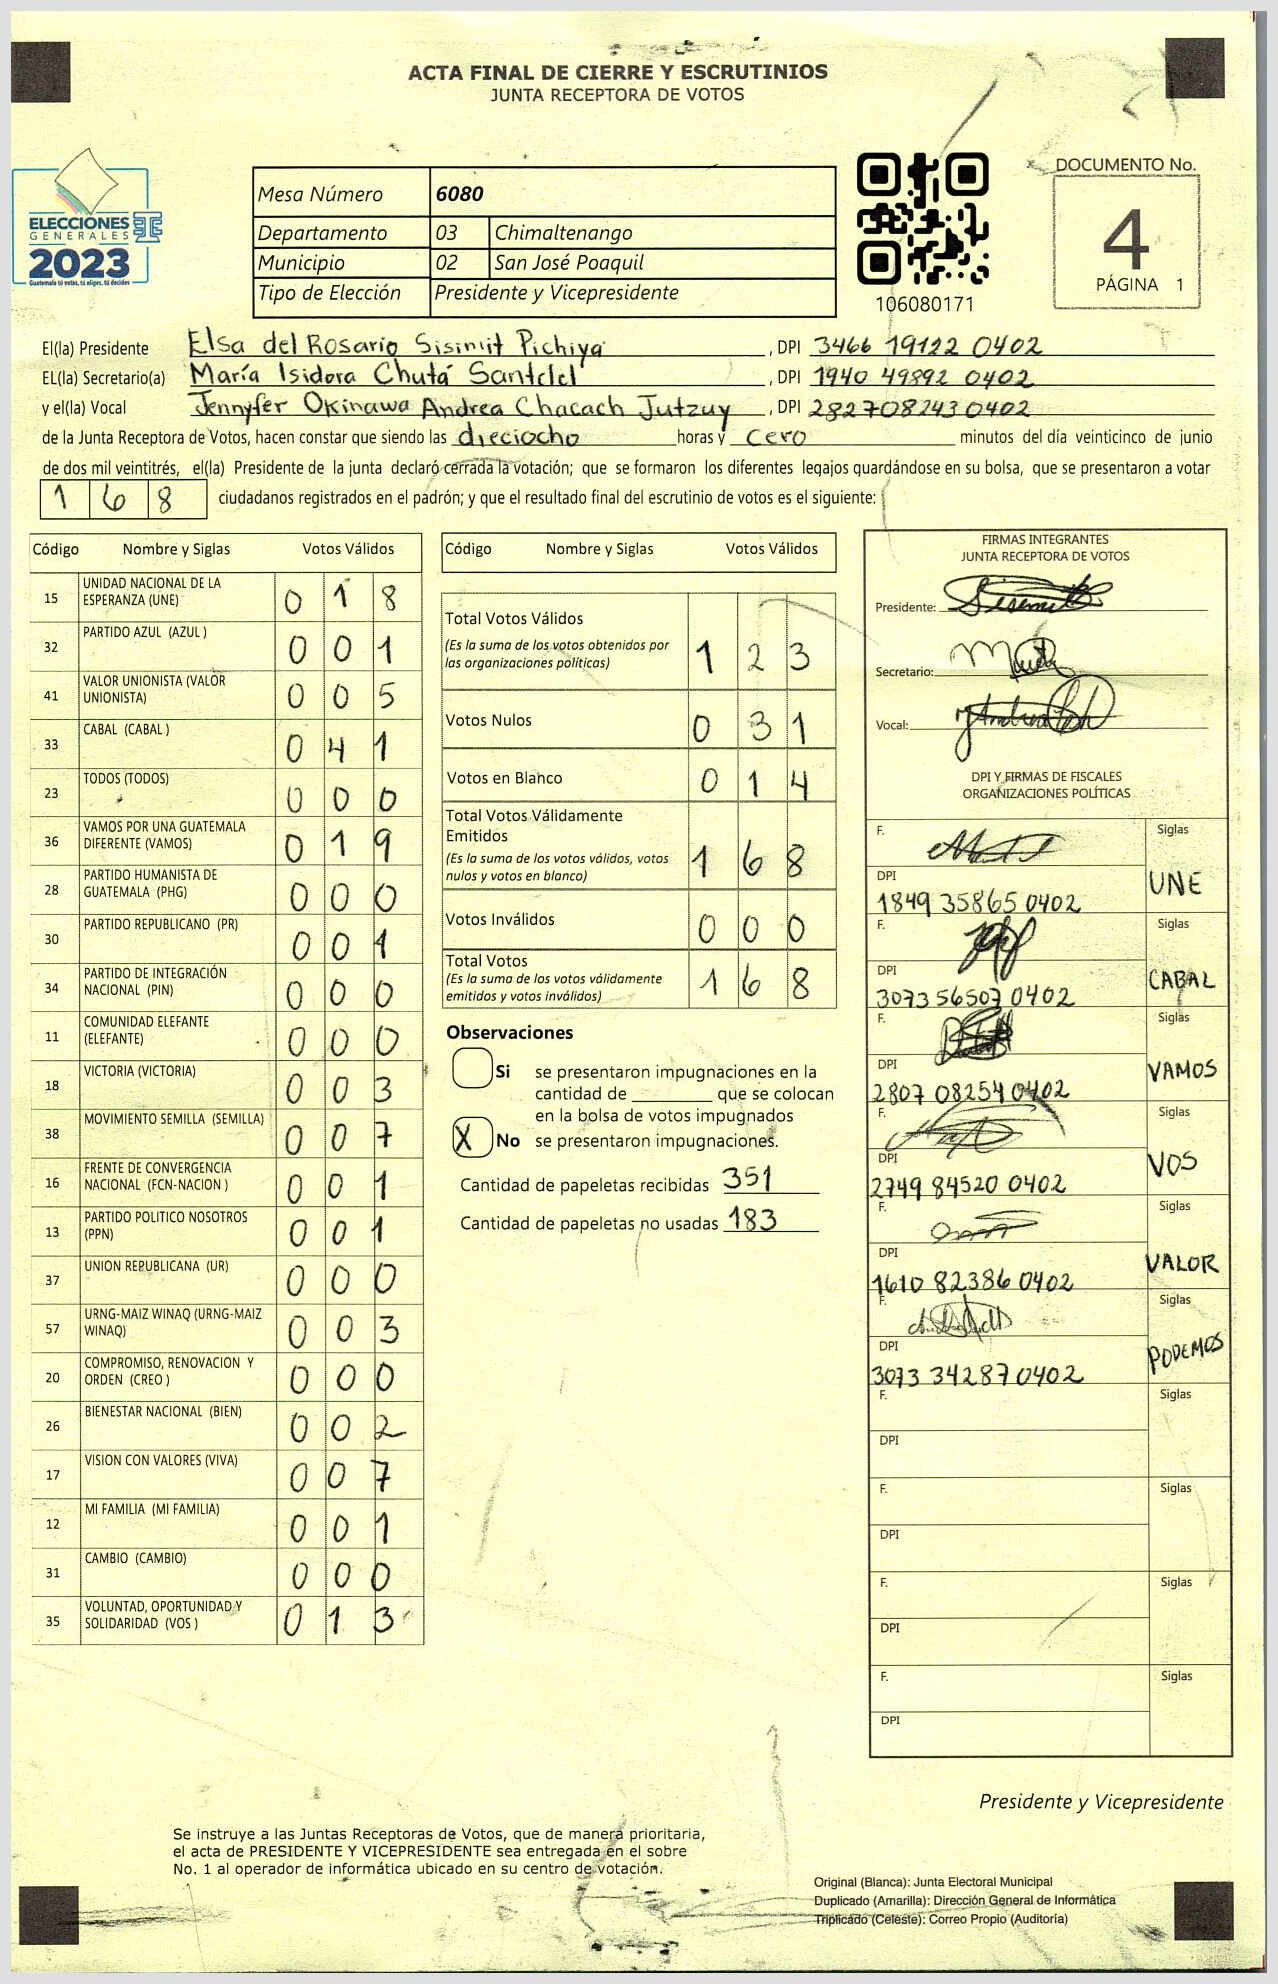 ACTA FINAL DE CIERRE Y ESCRUTINIOS
JUNTA RECEPTORA DE VOTOS
ELECCIONES
GENERALES
2023
Guatemala tú votas, tú eliges, tú decides
Mesa Número 6080
Departamento 03 Chimaltenango
Municipio 02 San José Poaquil
Tipo de Elección Presidente y Vicepresidente
106080171
DOCUMENTO No.
4
PÁGINA 1
El(la) Presidente Elsa del Rosario Sisimit Pichiya, DPI 3466 19122 0402
EL(la) Secretario(a) María Isidora Chutá, DPI 1940 49892 0402
y el(la) Vocal Jennyfer Okinawa Andrea Chacach Jutzuy, DPI 2827082430402
de la Junta Receptora de Votos, hacen constar que siendo las dieciocho horas y cero minutos del día veinticinco de junio
de dos mil veintitrés, el(la) Presidente de la junta declaró cerrada la votación; que se formaron los diferentes legajos guardándose en su bolsa, que se presentaron a votar
168 ciudadanos registrados en el padrón; y que el resultado final del escrutinio de votos es el siguiente:
Código Nombre y Siglas Votos Válidos
15 UNIDAD NACIONAL DE LA ESPERANZA (UNE) 0 1 8
32 PARTIDO AZUL (AZUL ) 0 0 1
41 VALOR UNIONISTA (VALOR UNIONISTA) 0 0 5
33 CABAL (CABAL ) 0 4 1
23 TODOS (TODOS) 0 0 0
36 VAMOS POR UNA GUATEMALA DIFERENTE (VAMOS) 0 1 9
28 PARTIDO HUMANISTA DE GUATEMALA (PHG) 0 0 0
30 PARTIDO REPUBLICANO (PR) 0 0 1
34 PARTIDO DE INTEGRACIÓN NACIONAL (PIN) 0 0 0
11 COMUNIDAD ELEFANTE (ELEFANTE) 0 0 0
18 VICTORIA (VICTORIA) 0 0 3
38 MOVIMIENTO SEMILLA (SEMILLA) 0 0 7
16 FRENTE DE CONVERGENCIA NACIONAL (FCN-NACION ) 0 0 1
13 PARTIDO POLITICO NOSOTROS (PPN) 0 0 1
37 UNION REPUBLICANA (UR) 0 0 0
57 URNG-MAIZ WINAQ (URNG-MAIZ WINAQ) 0 0 3
20 COMPROMISO, RENOVACION Y ORDEN (CREO ) 0 0 0
26 BIENESTAR NACIONAL (BIEN) 0 0 2
17 VISION CON VALORES (VIVA) 0 0 7
12 MI FAMILIA (MI FAMILIA) 0 0 1
31 CAMBIO (CAMBIO) 0 0 0
35 VOLUNTAD, OPORTUNIDAD Y SOLIDARIDAD (VOS ) 0 1 3
Código Nombre y Siglas Votos Válidos
Total Votos Válidos 1 2 3
(Es la suma de los votos obtenidos por
las organizaciones políticas)
Votos Nulos 0 3 1
Votos en Blanco 0 1 4
Total Votos Válidamente
Emitidos 1 6 8
(Es la suma de los votos válidos, votos
nulos y votos en blanco)
Votos Inválidos 0 0 0
Total Votos 1 6 8
(Es la suma de los votos válidamente
emitidos y votos inválidos)
Observaciones
Si se presentaron impugnaciones en la
cantidad de ________ que se colocan
en la bolsa de votos impugnados
X No se presentaron impugnaciones.
Cantidad de papeletas recibidas 351
Cantidad de papeletas no usadas 183
FIRMAS INTEGRANTES
JUNTA RECEPTORA DE VOTOS
Presidente:
Secretario:
Vocal:
DPI Y FIRMAS DE FISCALES
ORGANIZACIONES POLÍTICAS
F. Siglas
DPI UNE
1849 35865 0402
F. Siglas
DPI CABAL
3073 56507 0402
F. Siglas
DPI VAMOS
2807 08254 0402
F. Siglas
DPI VOS
2749 84520 0402
F. Siglas
DPI VALOR
1610 82386 0402
F. Siglas
DPI PODEMOS
3073 34287 0402
F. Siglas
DPI
F. Siglas
DPI
F. Siglas
DPI
F. Siglas
DPI
Presidente y Vicepresidente
Se instruye a las Juntas Receptoras de Votos, que de manera prioritaria,
el acta de PRESIDENTE Y VICEPRESIDENTE sea entregada en el sobre
No. 1 al operador de informática ubicado en su centro de votación.
Original (Blanca): Junta Electoral Municipal
Duplicado (Amarilla): Dirección General de Informática
Triplicado (Celeste): Correo Propio (Auditoría)